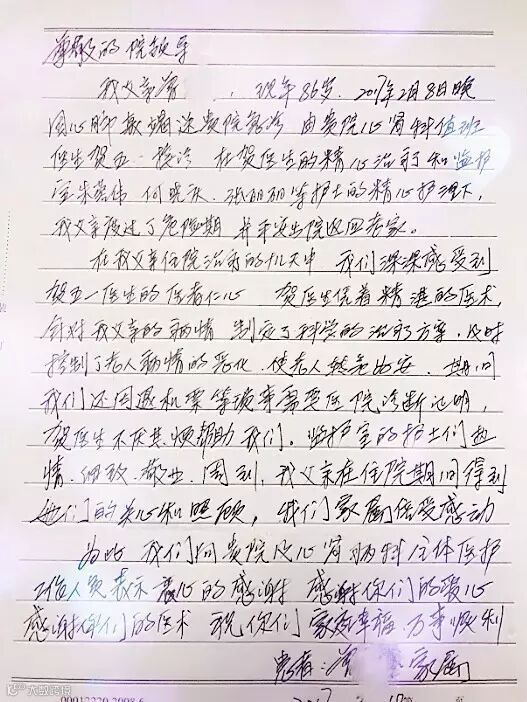 尊敬的院领导
我父亲 , 现年86岁. 2017年2月8日晚
因心肺衰竭送贵院急诊 由贵院心肾科值班
医生贺五一接诊 在贺医生的精心治疗和监护
室朱 何晓庆、张丽丽等护士的精心护理下,
我父亲度过了危险期 并平安出院返回老家。
在我父亲住院治疗的几天中 我们深深感受到
贺五一医生的医者仁心 贺医生凭着精湛的医术,
针对我父亲的病情 制定了科学的治疗方案、及时
控制了老人病情的恶化、使老人转危为安、期间
我们还因退机票等琐事需要医院诊断证明,
贺医生不厌其烦帮助我们。监护室的护士们热
情、细致、敬业、周到, 我父亲在住院期间得到
她们的关心和照顾, 我们家属倍受感动
为此 我们向贵院及心肾内科全体医护
工作人员表示衷心的感谢 感谢你们的爱心
感谢你们的医术 祝你们家庭幸福 万事顺利
患者: 家属
大数跨境